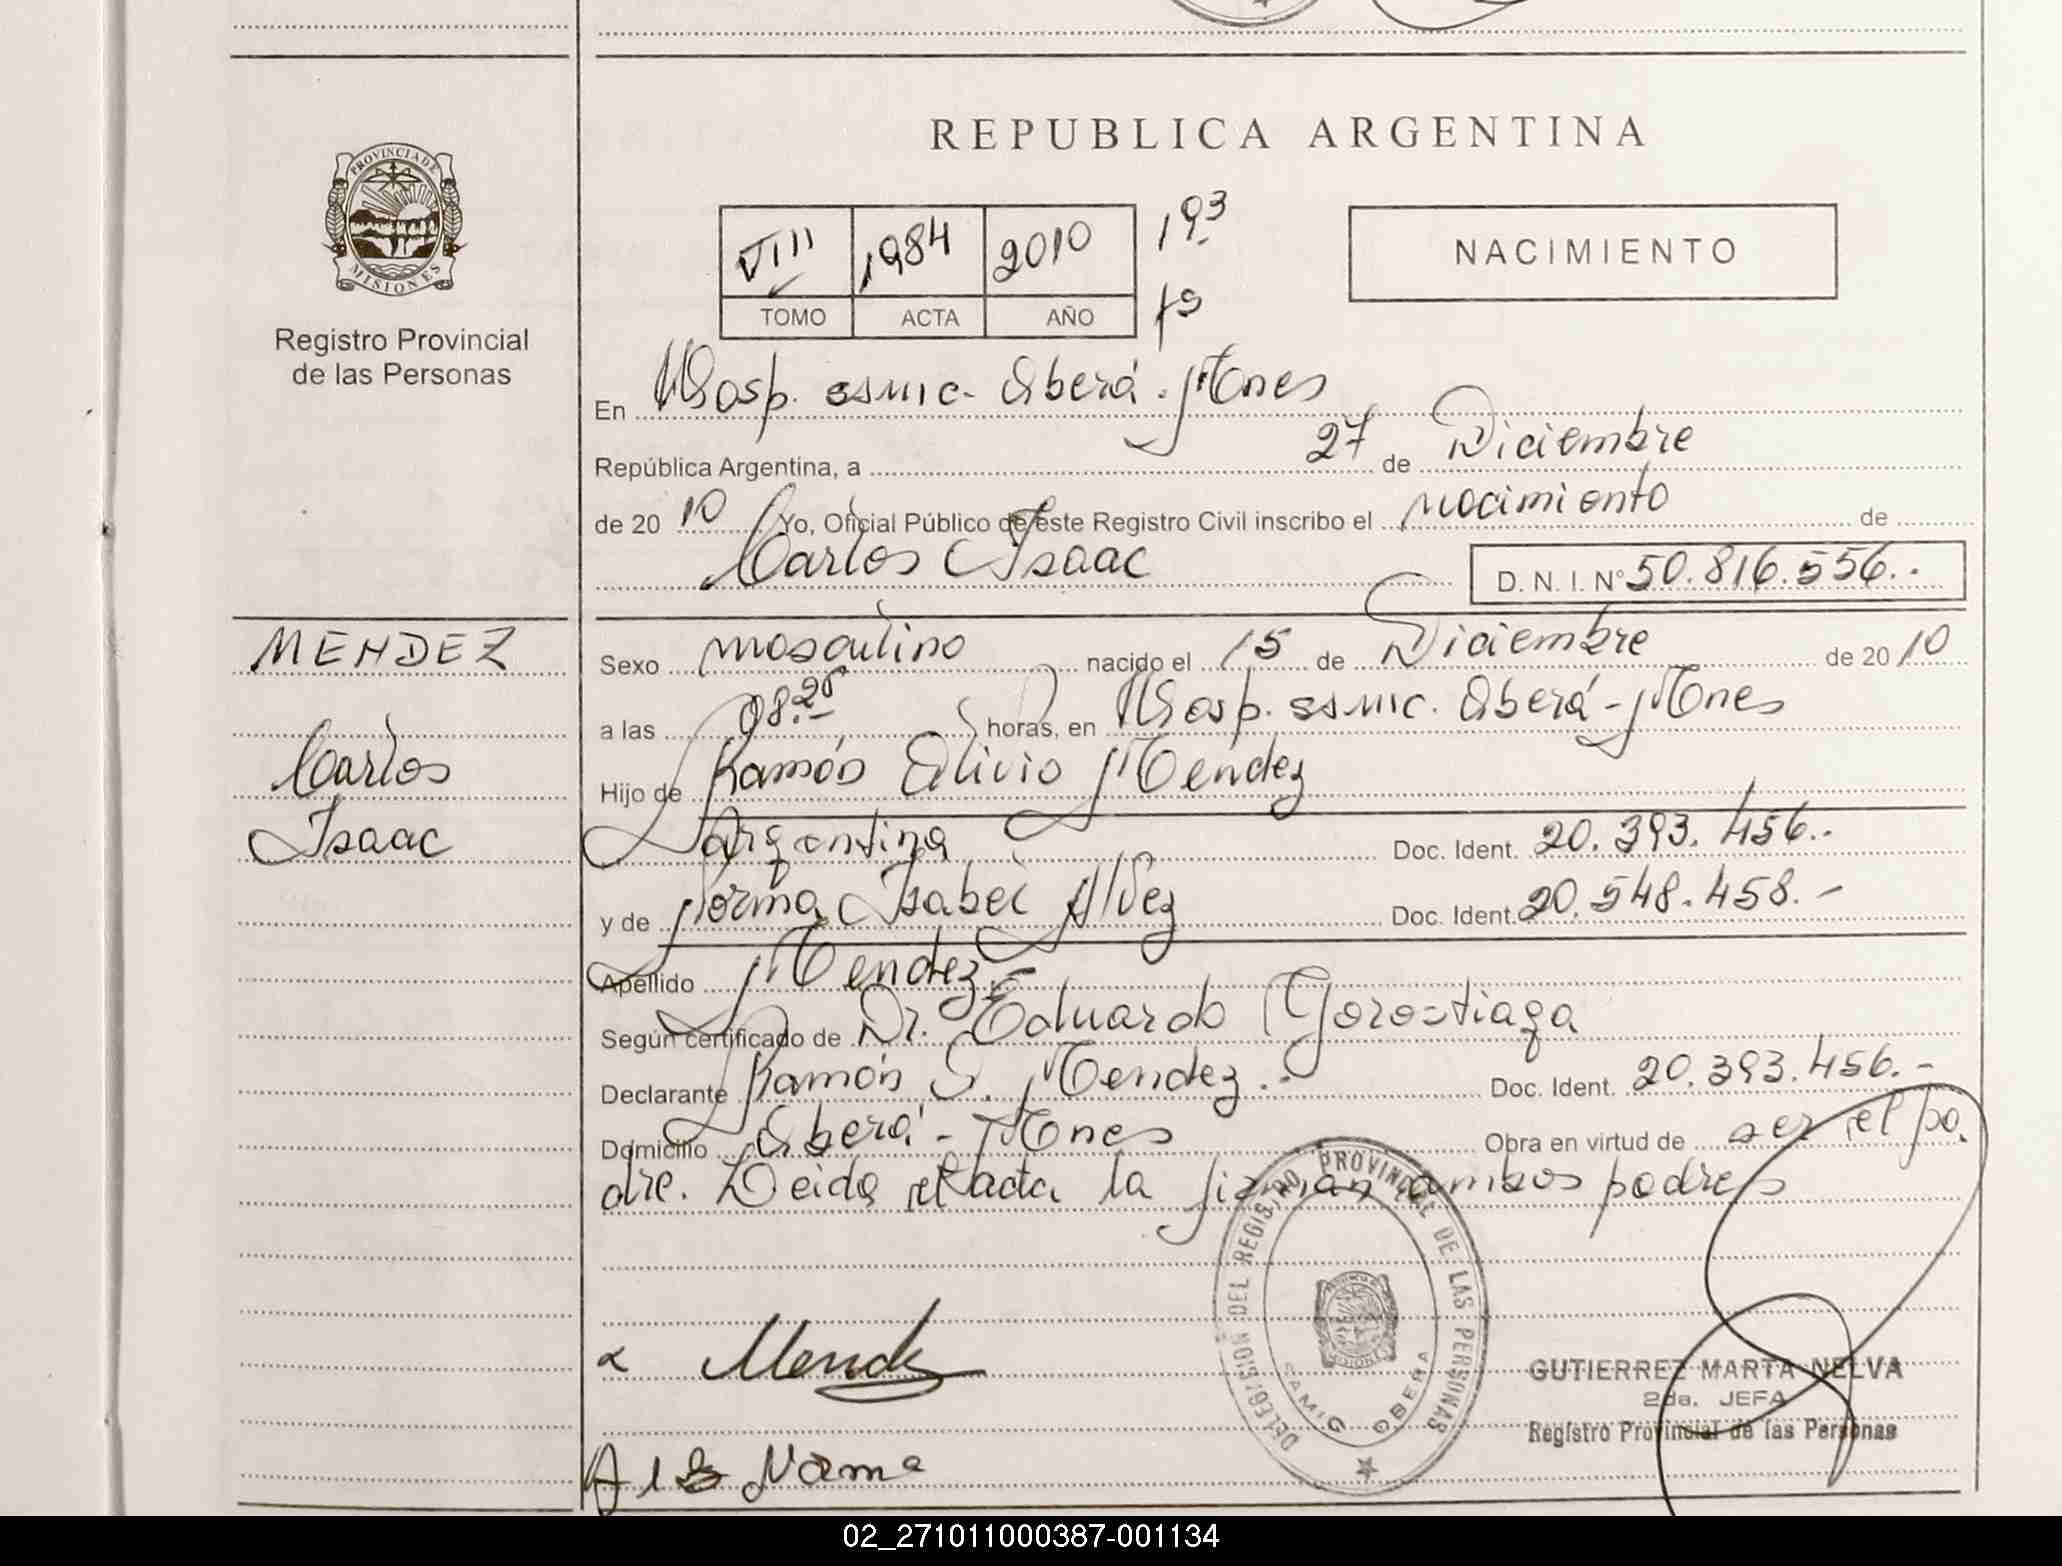 REPUBLICA ARGENTINA
PROVINCIA DE
MISIONES
Registro Provincial
de las Personas
VIII 1984 2010 193
TOMO ACTA AÑO fs
NACIMIENTO
En Hosp. ssmic. Oberá - Mones
República Argentina, a 27 de Diciembre
de 20 10 Yo, Oficial Público de este Registro Civil inscribo el nacimiento de
Carlos Isaac D. N. I. N° 50.816.556.-
MENDEZ
Carlos
Isaac
Sexo masculino nacido el 15 de Diciembre de 20 10
a las 08. horas, en Hosp. ssmic. Oberá - Mones
Hijo de Ramón Olivio Mendez
Argentina Doc. Ident. 20.393.456.-
y de Norma Isabel Alvez Doc. Ident. 20.548.458.-
Apellido Mendez
Según certificado de Dr. Eduardo Gorostiaga
Declarante Ramón O. Mendez.- Doc. Ident. 20.393.456.-
Domicilio Oberá - Mones Obra en virtud de ser el pa.
dre. Leida el acta la firman ambos padres
DELEGACION DEL REGISTRO PROVINCIAL DE LAS PERSONAS
SAMIC OBERA
GUTIERREZ MARTA NELVA
2da. JEFA
Registro Provincial de las Personas
Norma
02_271011000387-001134